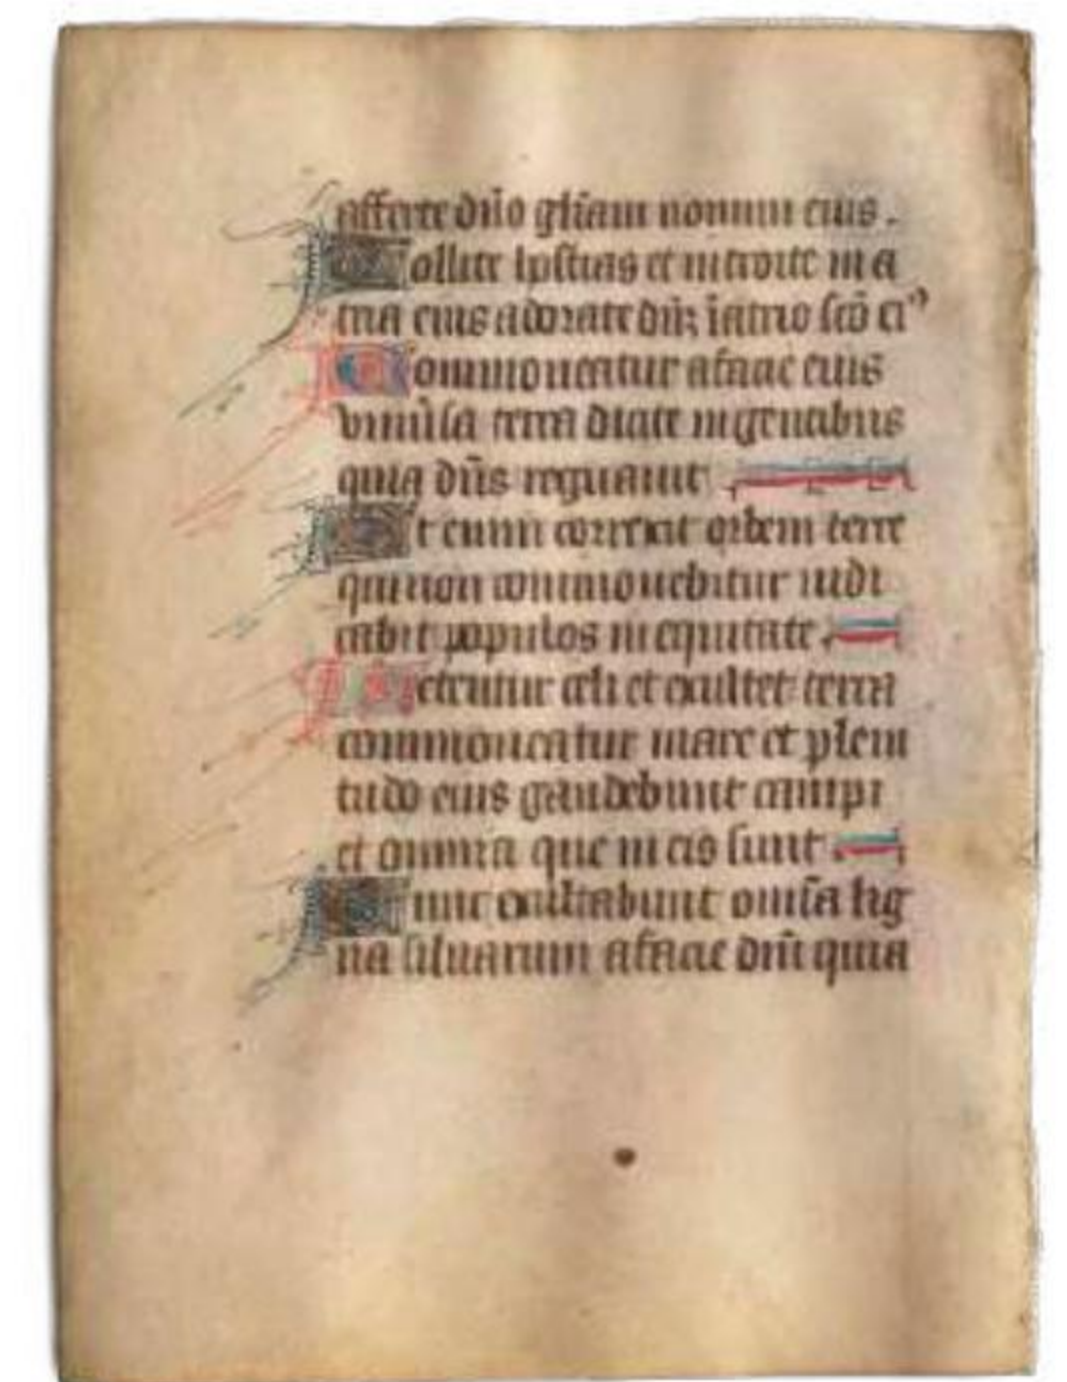 afferte dño gl̃iam nomini eius.
Tollite hostias et introite in a
tria eius adorate dñz ĩ atrio sc̃o ei⁹
Commoueatur a facie eius
vniũsa terra dicite in gentibus
quia dñs regnauit
Et enim correxit orbem terre
qui non commouebitur iudi
cabit populos in equitate.
Letentur celi et exultet terra
commoueatur mare et pleni
tudo eius gaudebunt campi
et omnia que in eis sunt.
Tunc exultabunt omĩa lig
na siluarum a facie dñi quia